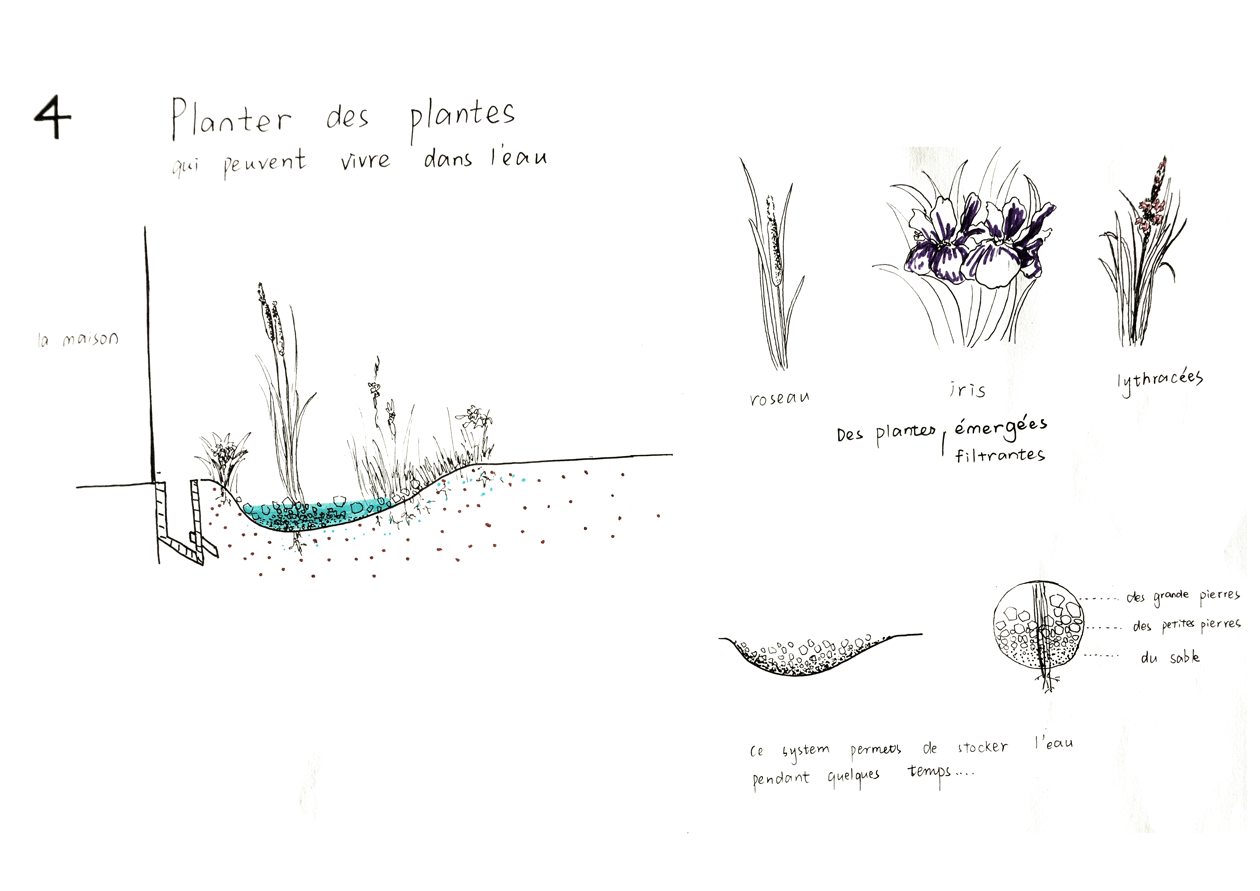 4
Planter des plantes
qui peuvent vivre dans l'eau
la maison
roseau
iris
lythracées
Des plantes, émergées
filtrantes
des grande pierres
des petites pierres
du sable
Ce system permets de stocker l'eau
pendant quelques temps....